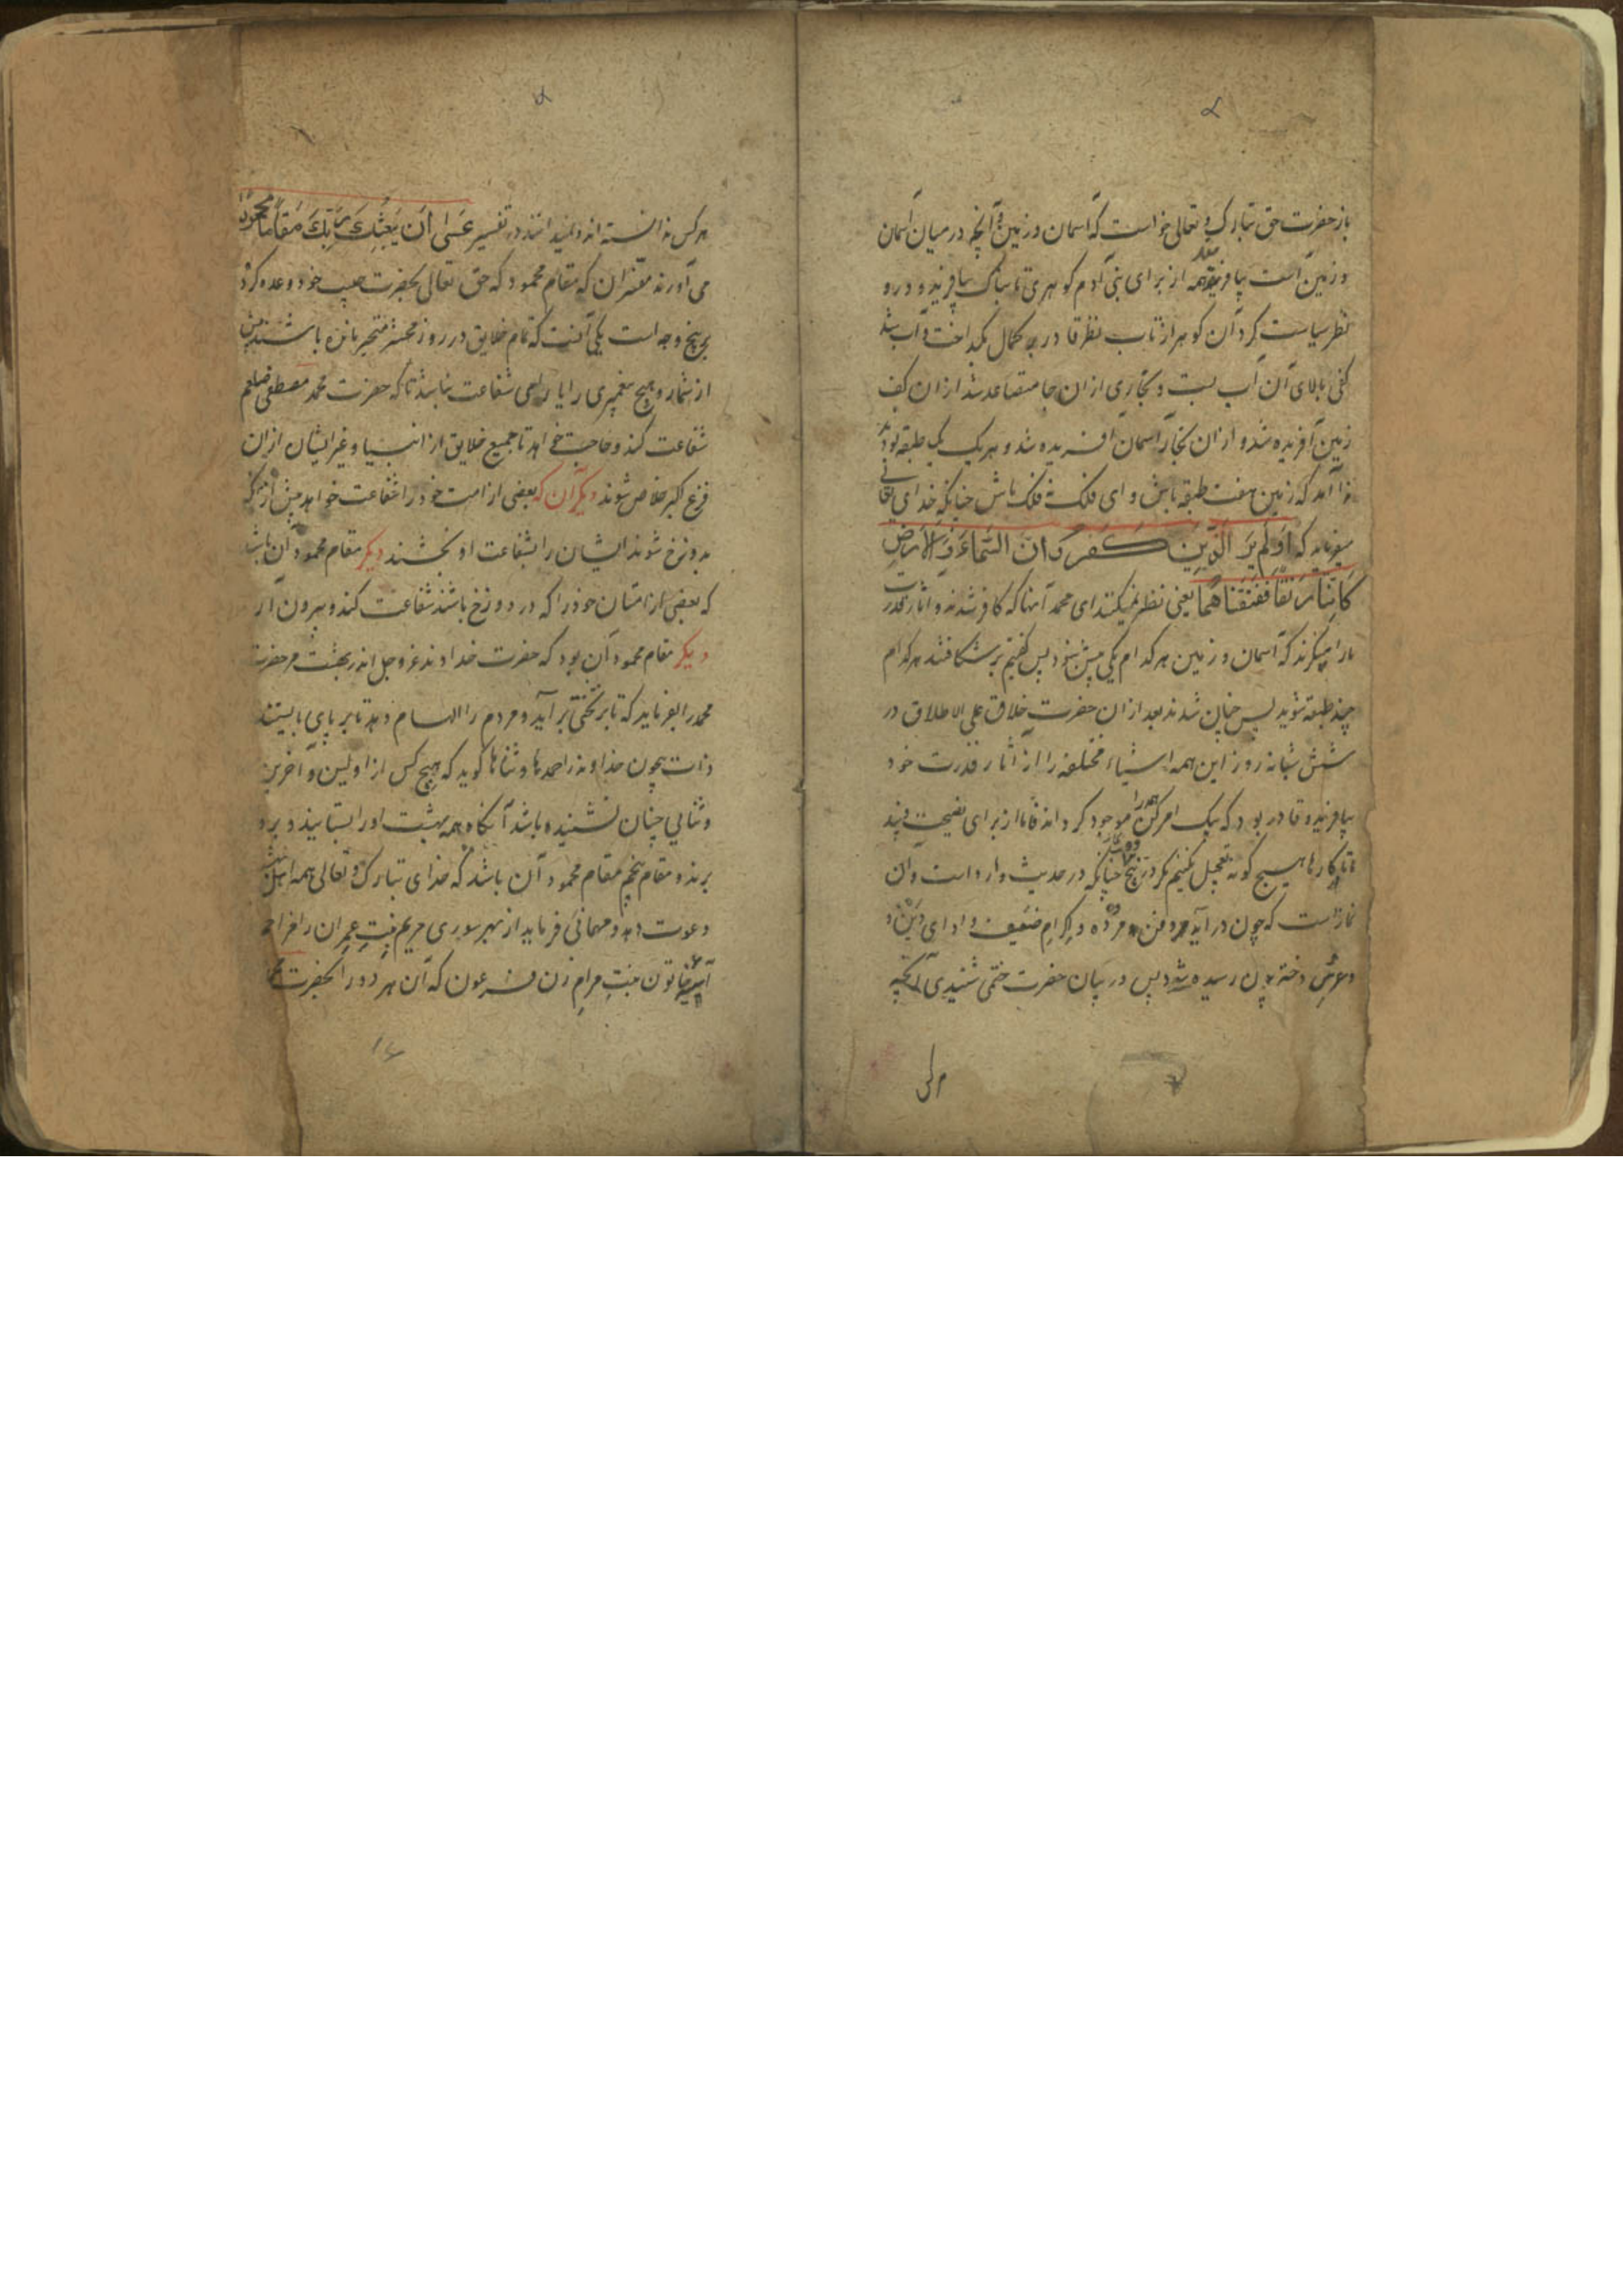 باز حضرت حق تبارک و تعالی خواست که آسمان و زمین و آنچه در میان آسمان
و زمین است بیافریند همه از برای بنی آدم گوهری تابناک بیافرید و درو
نظر سیاست کرد آن گوهر از تاب نظر قادر بر کمال بگداخت و آب شد
کفی بالای آن آب بست و بخاری از ان جا متصاعد شد از ان کف
زمین آفریده شد و از ان بخار آسمان آفریده شد و هر یک یک طبقه بودند
ندا آمد که زمین هفت طبقه باش و ای فلک نه فلک باش چنانکه خدای تعالی
میفرماید که اَوَلَم یَرَ الَّذِینَ کَفَرُوا اَنَّ السَّمَاءَ وَ الاَرضِ
کَانَتَا رَتقًا فَفَتَقنَاهُمَا یعنی نظر نمیکنند ای محمد آنها که کافر شدند و آثار قدرت
ما را میگرند که آسمان و زمین هر کدام یکی بیش نبود پس گفتیم بر شکافند هر کدام
چند طبقه شوید پس چنان شدند بعد از ان حضرت خلاق علی الاطلاق در
شش شبانه روز این همه اشیاء مختلفه را از آثار قدرت خود
بیافرید و قادر بود که بیک امر کن همه را موجود گرداند فاما از برای نصیحت
تا در کارها هیچ گونه تعجیل نکنیم مگر در پنج وقت چنانکه در حدیث وارد است و آن
نماز است که چون در آید و دفن مرده و اکرام ضعیف و ادای دین
و عرس دختر چون رسیده شود پس در بیان حضرت ختمی شنیدی آنچه
هر کس ندانسته اند و نمیدانند در تفسیر عَسَی اَن یَبعَثَکَ رَبُّکَ مَقَامًا مَحمُودًا
می آورند مفسران که مقام محمود که حق تعالی بحضرت حبیب خود وعده کرد
بر پنج وجه است یکی آنست که تمام خلایق در روز محشر متحیر مانده باشند پیش
از شمار و هیچ پیغمبری را یارای شفاعت نباشد تا که حضرت محمد مصطفی صلعم
شفاعت کند و حاجت خواهد تا جمیع خلایق از انبیا و غیر ایشان از ان
فزع اکبر خلاص شوند دیگر آن که بعضی از امت خود را شفاعت خواهد پیش از آنکه
بدوزخ شوند ایشان را بشفاعت او بخشند دیگر مقام محمود آن باشد
که بعضی از امتان خود را که در دوزخ باشند شفاعت کند و بیرون آر
دیگر مقام محمود آن بود که حضرت خداوند عز و جل اندر بهشت مر حضرت
محمد را بفرماید که تا بر تختی بر آید و مردم را الهام دهد تا بر پای بایستند
ذات بیچون خداوند را حمدها و ثناها گوید که هیچ کس از اولین و آخرین
و ثنایی چنان نشنیده باشد آنگاه همه بهشت او را بستایند و برو
برند و مقام پنجم مقام محمود آن باشد که خدای تبارک و تعالی همه اهل بهشت
دعوت دهد و مهمانی فرماید از بهر سوری مریم بنت عمران را خواهر
آسیه خاتون بنت مزاحم زن فرعون که آن هر دو را بحضرت محمد